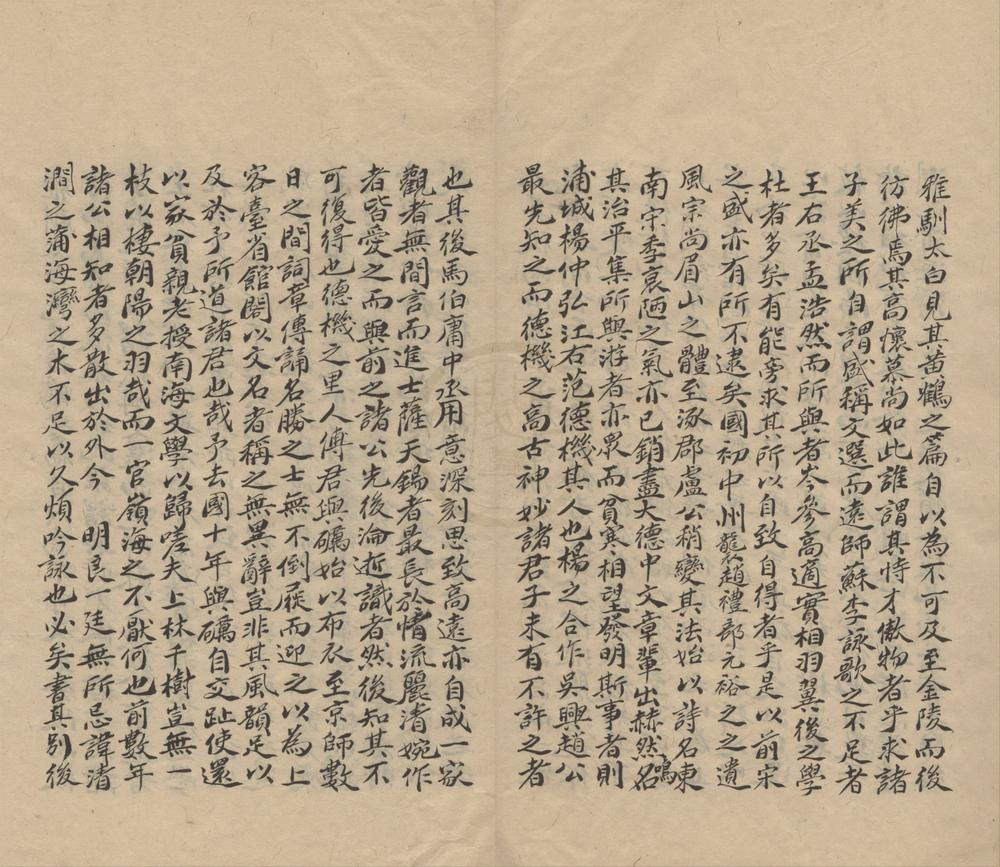 雅馴太白見其黃鶴之篇自以為不可及至金陵而後
彷彿焉其高懷慕尚如此誰謂其恃才傲物者乎求諸
子美之所自謂盛稱文選而遠師蘇李詠歌之不足者
王右丞孟浩然而所與者岑參高適實相羽翼後之學
杜者多矣有能旁求其所以自致自得者乎是以前宋
之盛亦有所不逮矣國初中州龍趙禮部元裕之之遺
風宗尚眉山之體至涿郡盧公稍變其法始以詩名東
南宋季衰陋之氣亦已銷盡大德中文章輩出赫然鳴名
其治平集所與游者亦眾而貧寒相望發明斯事者則
浦城楊仲弘江右范德機其人也楊之合作吳興趙公
最先知之而德機之高古神妙諸君子未有不許之者
也其後馬伯庸中丞用意深刻思致高遠亦自成一家
觀者無間言而進士薩天錫者最長於情流麗清婉作
者皆愛之而與前之諸公先後淪逝識者然後知其不
可復得也德機之里人傅君與礪始以布衣至京師數
日之間詞章傳誦名勝之士無不倒屣而迎之以為上
客臺省館閣以文名者稱之無異辭豈非其風韻足以
及於予所道諸君也哉予去國十年與礪自交趾使還
以家貧親老授南海文學以歸嗟夫上林千樹豈無一
枝以棲朝陽之羽哉而一官嶺海之不厭何也前數年
諸公相知者多散出於外今 明良一廷無所忌諱清
澗之蒲海灣之木不足以久煩吟詠也必矣書其別後